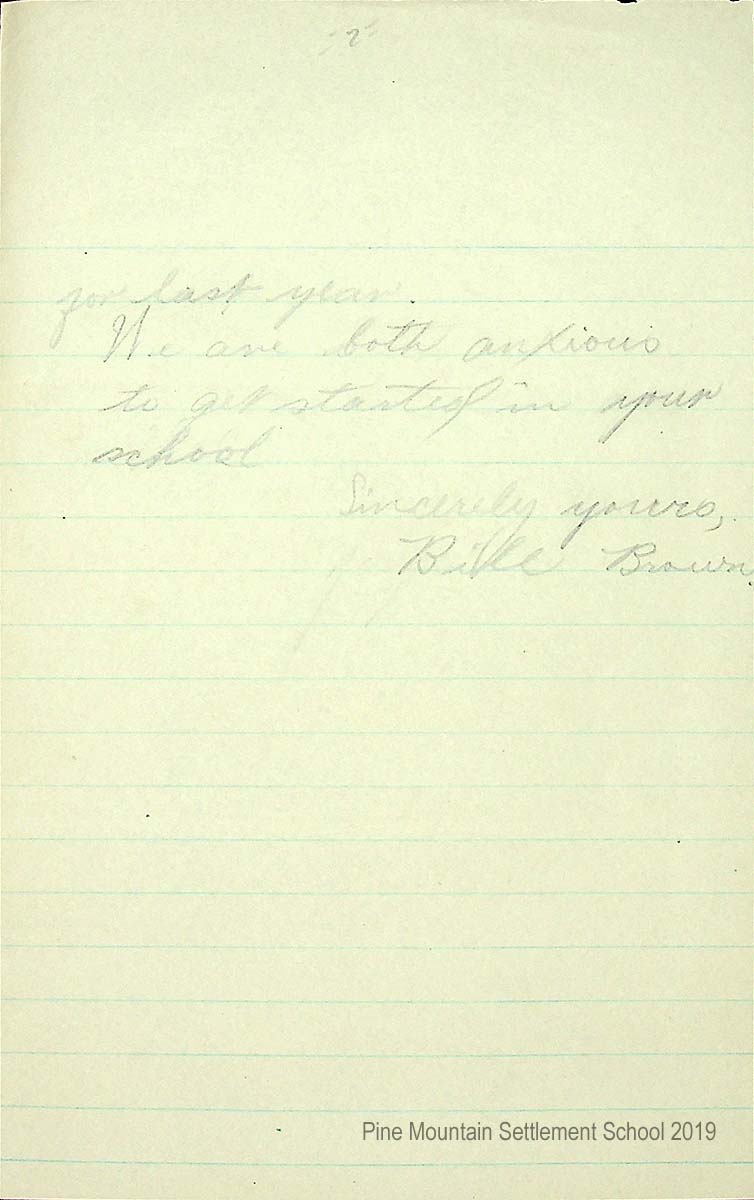 -2-
for last year.
We are both anxious
to get started in your
school
Sincerely yours,
Bill Brown
Pine Mountain Settlement School 2019